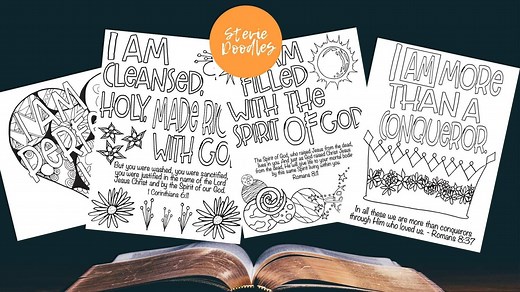 Stevie
Doodles
I AM
REDE
I AM
CLEANSED,
HOLY, MADE RIG
WITH GO
But you were washed, you were sanctified,
you were justified in the name of the Lord
Jesus Christ and by the Spirit of our God.
1 Corinthians 6:11
I AM
FILLED
WITH THE
SPIRIT OF GOD
The Spirit of God, who raised Jesus from the dead,
lives in you. And just as God raised Christ Jesus
from the dead, He will give life to your mortal body
by this same Spirit living within you.
Romans 8:11
I AM MORE
THAN A
CONQUEROR.
In all these we are more than conquerors
through Him who loved us. - Romans 8:37